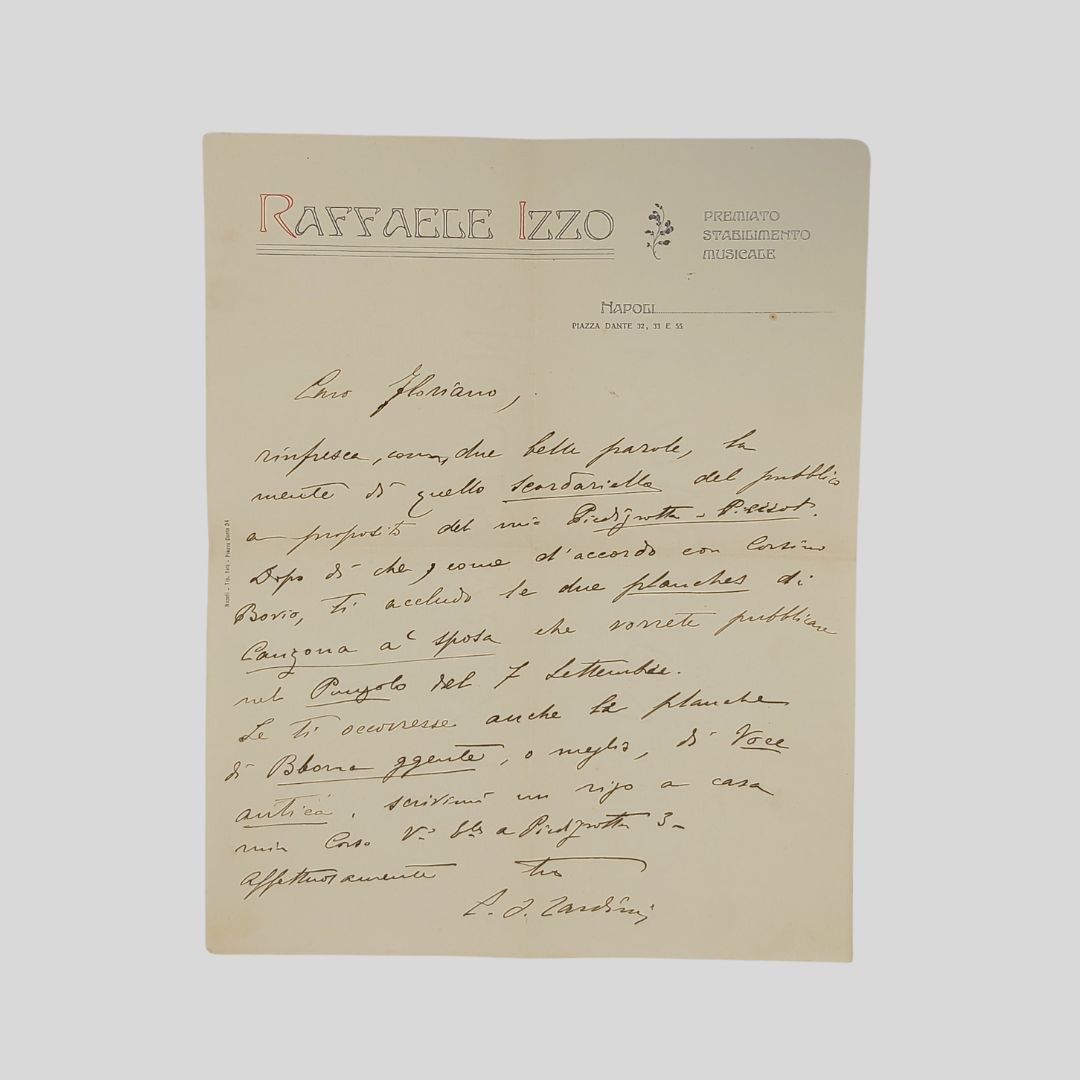 RAFFAELE IZZO
PREMIATO
STABILIMENTO
MUSICALE
NAPOLI
PIAZZA DANTE 32, 33 E 55
Caro Floriano,
rinfresca, con due belle parole, la
mente di quello scordariello del pubblico
a proposito del mio Piedigrotta -
Dopo di che, come d'accordo con Corsino
Bovio, ti accludo le due planches di
Canzona a' sposa che vorrete pubblicare
nel Pungolo del 7 Settembre.
Se ti occorresse anche la planche
di Bbona ggente, o meglio, di Voce
antica, scrivimi un rigo a casa
mia Corso a Piedigrotta 3-
affettuosamente tuo